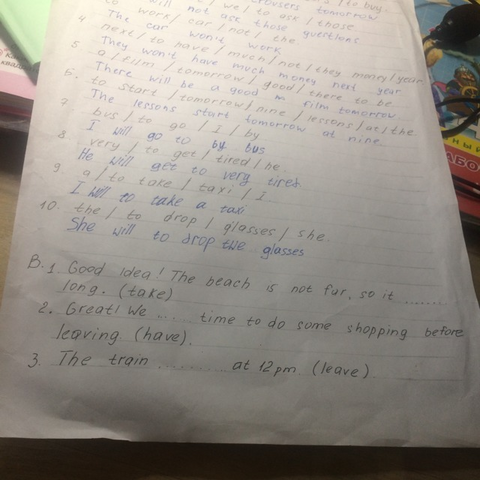 trousers tomorrow
will not ask those questions
4. to work / car / not / the
The car won't work
5. next / to have / much / not / they money / year
They won't have much money next year
6. a / film / tomorrow / good / there to be
There will be a good m film tomorrow.
7. to start / tomorrow / nine / lessons / at / the
The lessons start tomorrow at nine.
bus / to go / I / by
I will go to by bus
8. very / to get / tired / he.
He will get to very tired
9. a / to take / taxi / I
I will to take a taxi
10. the / to drop / glasses / she.
She will to drop the glasses
B. 1. Good idea! The beach is not far, so it .......
long. (take)
2. Great! We ... time to do some shopping before
leaving. (have).
3. The train ......... at 12 pm (leave).